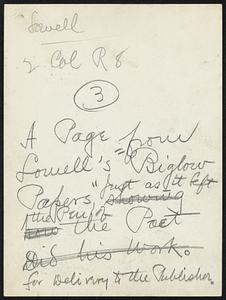 Lowell
2 Col R 8
3
A Page from
Lowell's "Biglow
Papers," Just as it left
showing
the Pen of
how the Poet
Did his Work.
for Delivery to the Publisher.